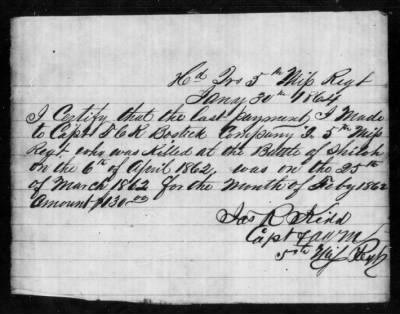 Hd Qrs 5th Miss Regt
Jany 30th 1864
I Certify that the last payment I Made
to Capt J C K Bostick Company I. 5th Miss
Regt. who was Killed at the Battle of Shiloh
on the 6th of April 1862, was on the 25th
of March 1862 for the Month of Feby 1862
Amount $130.00
Jas R Kidd
Capt & AQM
5th Miss Regt